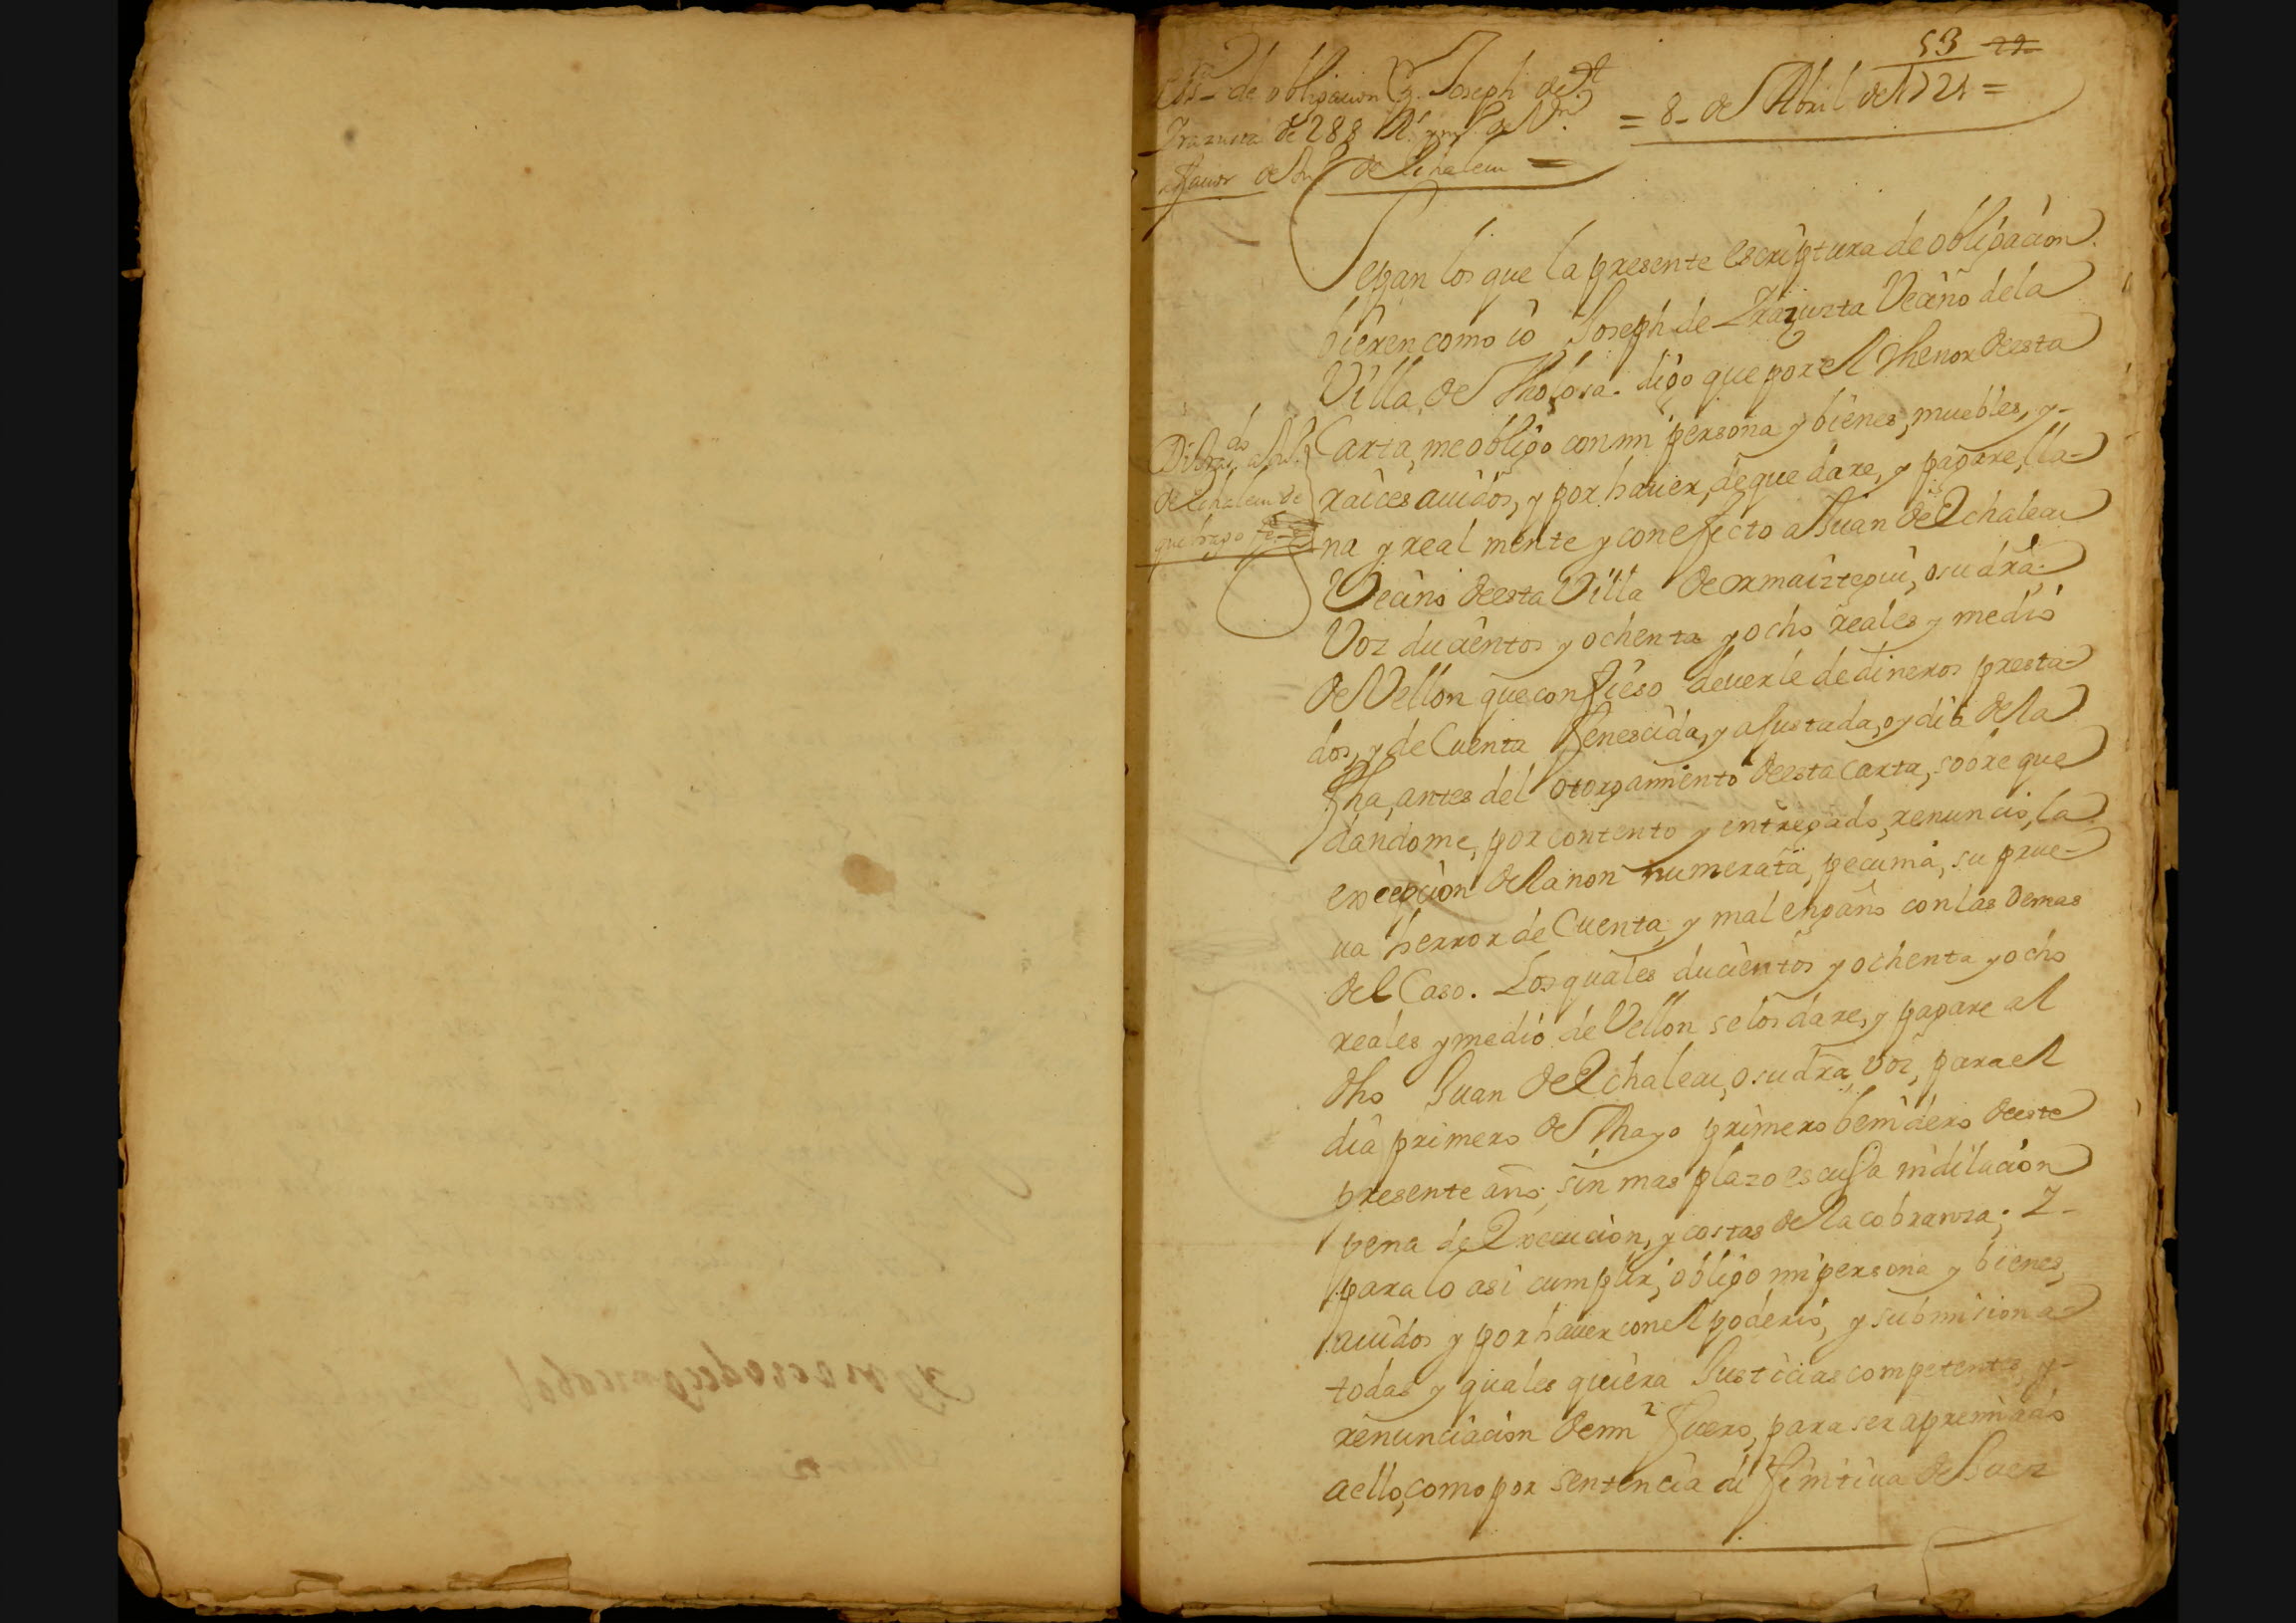 53 29
Ess.ra de obligacion C. Joseph de
Yrazusta de 288 R.s y m.o de V.n
= 8 de Abril de 1724 =
a favor de Ju.n de Echaleku =
Sepan los que la presente escriptura de obligacion
bieren como io Joseph de Yrazusta Vecino de la
Villa de Tholosa. digo que por el thenor de esta
Carta, me obligo con mi persona y bienes, muebles, y-
raices auidos, y por hauer, de que dare, y pagare, lla-
na y real mente y con efecto a Juan de Echalecu
Vecino de esta Villa de ormaiztegui, o su dra
Voz ducientos y ochenta y ocho reales y medio
de Vellon que confieso deuerle de dineros presta-
dos, y de Cuenta fenescida, y ajustada, oy dia de la
fha, antes del otorgamiento de esta carta, sobre que
dandome, por contento y entregado, renuncio, la
excepcion de la non numerata, pecunia, su prue-
ua herror de Cuenta y mal engaño con las demas
del Caso. Los quales ducientos y ochenta y ocho
reales y medio de Vellon se los dare, y pagare al
dho Juan de Echalecu, o su dra, voz, para el
dia primero de Mayo primero benidero de este
presente año, sin mas plazo escussa ni dilacion
pena de Execucion, y costas de la cobranza; Y-
para lo asi cumplir, obligo mi persona y bienes,
auidos y por hauer con el poderio, y submision a-
todas y quales quiera Justicias competentes, y-
renunciacion de mi fuero, para ser apremiado
a ello, como por sentencia difinitiua de Juez